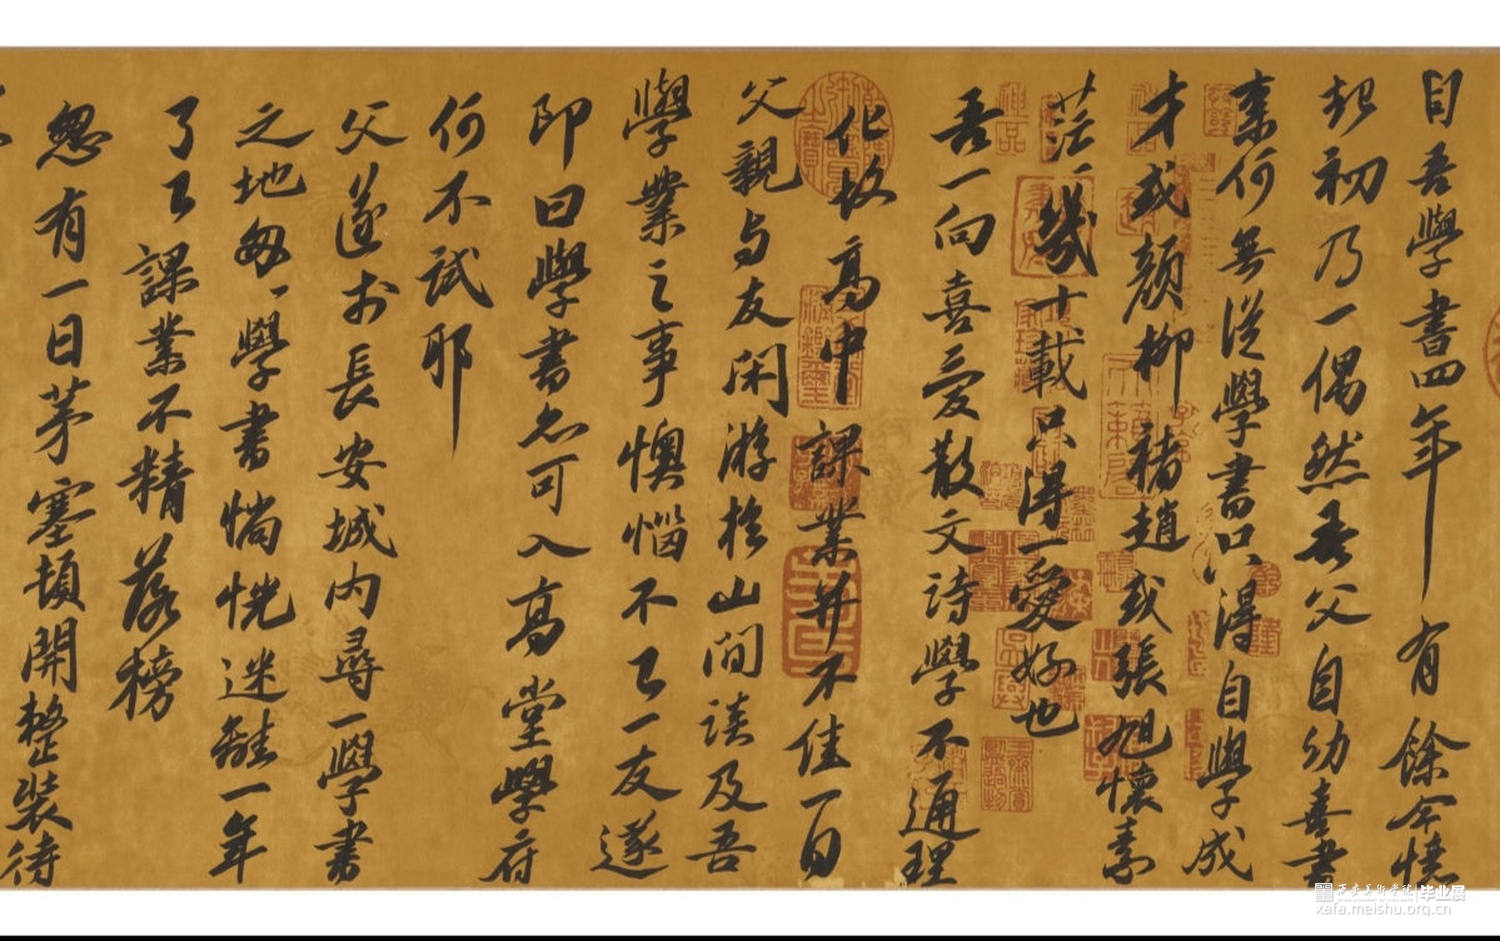 自吾學書四年有餘今憶
起初乃一偶然吾父自幼喜書
柰何無從學書只得自學成
才或顏柳褚趙或張旭懷素
茫茫幾十載只得一愛好也
吾一向喜愛散文詩學不通理
化故高中課業并不佳一日
父親与友閑游於山間談及吾
學業之事懊惱不已一友遂
即曰學書亦可入高堂學府
何不試耶
父遂於長安城内尋一學書
之地匆匆學書惝恍迷離一年
了了課業不精落榜
忽有一日茅塞頓開整裝待
西安美术学院 毕业展
xafa.meishu.org.cn